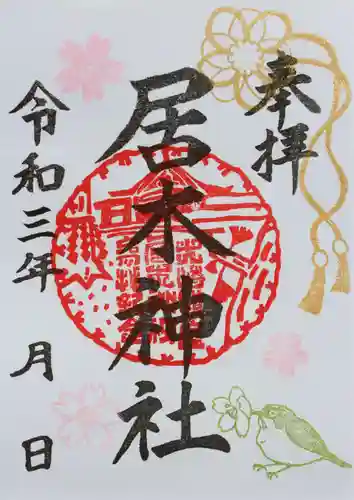 奉拝
居木神社
令和三年 月 日